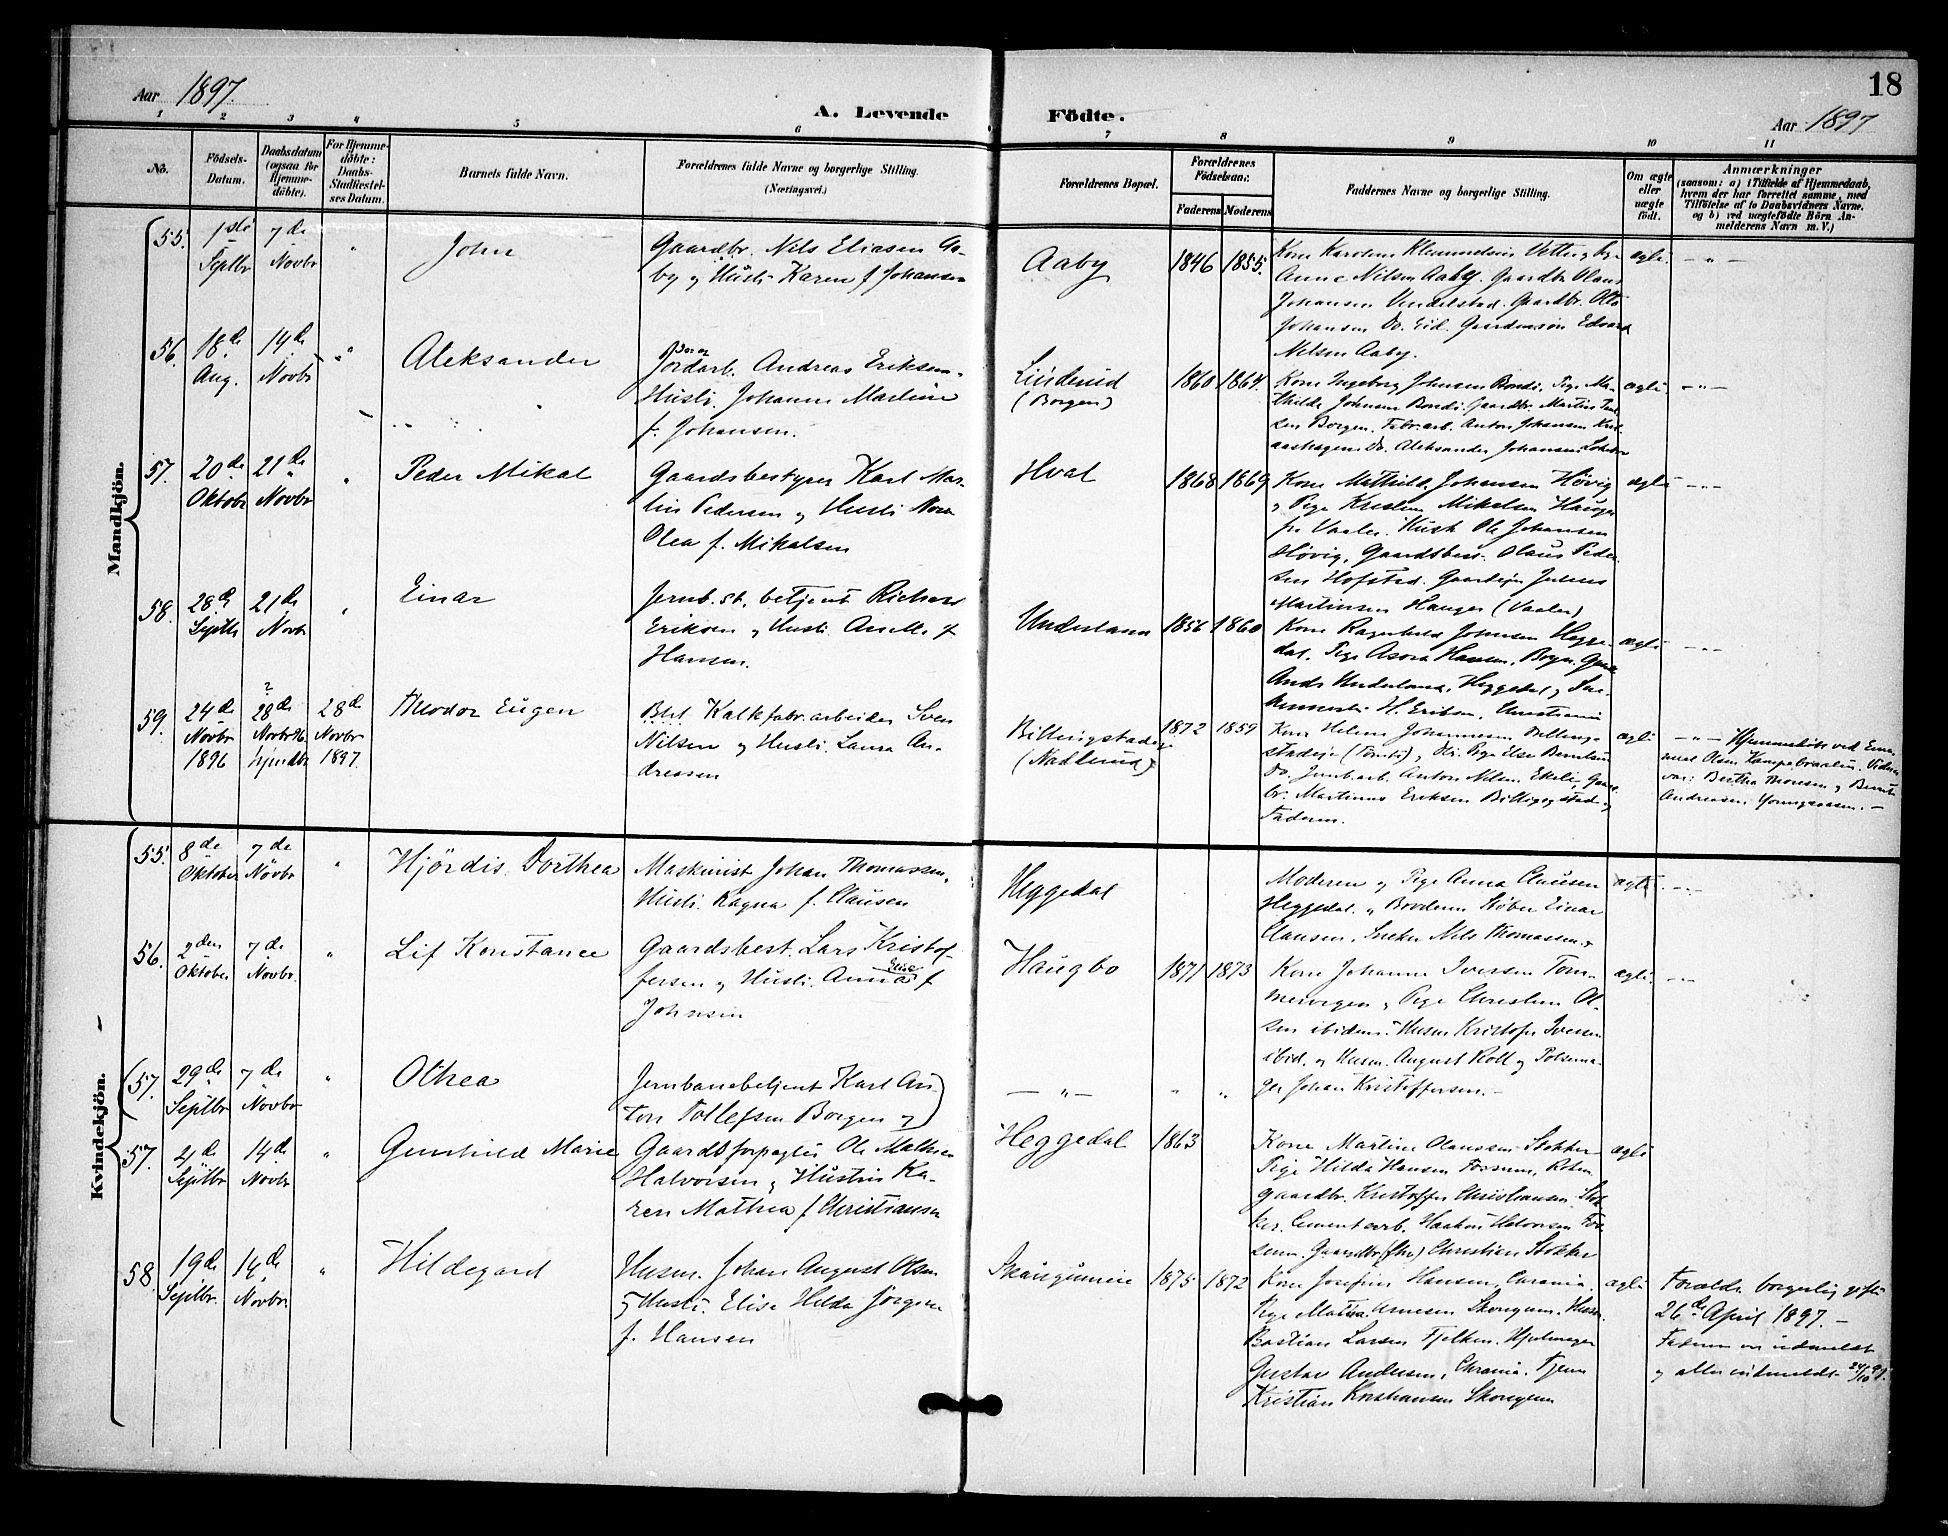 18
Aar 1897.
A. Levende
Födte.
Aar 1897
1 2 3 4 5 6 7 8 9 10 11
No.
Födsels-
Datum.
Daabsdatum
(ogsaa for
Hjemme-
döbte).
For Hjemme-
döbte:
Daabs-
Stadfæstel-
ses Datum.
Barnets fulde Navn.
Forældrenes fulde Navne og borgerlige Stilling.
(Næringsvei.)
Forældrenes Bopæl.
Forældrenes
Födselsaar.
Faderens Moderens
Faddernes Navne og borgerlige Stilling.
Om ægte
eller
uægte
födt.
Anmærkninger
(saasom: a) i Tilfælde af Hjemmedaab,
hvem der har forrettet samme, med
Tilföielse af to Daabsvidners Navne.
og b) ved uægtefödte Börn An-
melderens Navn m. V.)
Mandkjön.
55.
1ste
Septbr
7de
Novbr
"
John
Gaardbr. Nils Eliasen Aa-
by og Hustr. Karen f Johansen
Aaby
1846 1855.
Kone Karoline Klemmetsen
Anne Nilsen Aaby. Gaardbr Olaus
Johansen Vendelstad. Gaardbr. Otto
Johansen Do. Eid. Gaardmsön Edvard
Nilsen Aaby.
ægte.
— " —
56.
18de
Aug.
14de
Novbr
"
Aleksander
Jordarb. Andreas Eriksen.
Hustr. Johanne Martine
f. Johansen.
Linderud
(Borgen)
1860 1864.
Kone Ingeborg Johnsen Bondi. Pige Ma-
thilde Johnsen Bondi. Gaardbr. Martin
Borgen. Fabr.arb. Anton Johansen
Do. Aleksander Johansen
ægte.
— " —
57.
20de
Oktobr
21de
Novbr
"
Peder Mikal
Gaardsbestyrer Karl Mar-
tin Pedersen og Hustr. Nora
Olea f. Mikalsen
Hval
1868 1869
Kone Mathild. Johansen Hövig
og Pige Kristine Mikelsen Hauger
fra Vaaler. Kusk Ole Johansen
Hövig, Gaardsbest. Olaus Peder-
sen Hofstad. Julius
Martinsen Hauger (Vaaler)
ægte
— " —
58.
28de
Septbr
21de
Novbr
"
Einar
Jernb.st. betjent Richard
Eriksen og Hustr. f
Hansen.
Underland
1856 1860
Kone Ragnhild Johnsen Hegge-
dal. Pige Asora Hansen,
Ands Underland, Heggedal og
H. Eriksen, Christiania
ægte
— " —
59.
24de
Novbr
1896
?
28de
Novbr 96
28de
Novbr
1897.
Theodor Eugen
Kalkfabr.arbeider Sven
Nilsen og Hustr. Laura An-
dressen
Billingstad
1872 1859
Kone Helene Johannesen Billing-
stad og Pige Else
Do. Jernb.arb. Anton Nilsen Ekeli, Gaard-
br. Martinus Eriksen Billingstad og
Faderen.
ægte
— " — Hjemmedöbt ved
Olsen
var: Bertha Thoresen og
Andreasen
Kvindekjön.
55.
8de
Oktober
7de
Novbr
"
Hjördis Dorthea
Maskinist Johan Thomassen.
Hustr. Ragna f. Clausen
Heggedal
Moderen og Pige Anna Clausen
Heggedal. og Broderen Stöber Einar
Clausen, Nils Thomassen
ægte.
— " —
56.
2den
Oktober
7de
Novbr.
"
Lif Konstance
Gaardsbest. Lars Kristof-
fersen og Hustr. Anna Elise f
Johnsen
Haugbo
1871 1873
Kone Johanne Iversen Tom-
og Pige Christine Ol-
sen ibidem. Husm Kristofer Iversen
ibid. og Husm. August Roll og Pölsema-
ger Johan Kristoffersen. —
ægte.
— " —
(57.
29de
Septbr
7de
Novbr
"
Othea
Jernbanebetjent Karl An-
ton Tollefsen Borgen og)
— " —
" "
57.
4de
Septbr
14de
Novbr
"
Gunhild Marie
Gaardsforpagter Ole Mathias
Halvorsen og Hustru Ka-
ren Mathea f Christiansen
Heggedal
1863
Kone Martine Olaussen Stokker
Pige Hilda Hansen Fossum,
Gaardbr. Kristoffer Christiansen Stok-
ker. Cementarb. Haakon Halvorsen Fos-
sum. Gaardbr Christian Stokker
ægte
58
19de
Septbr.
14de
Novbr.
"
Hildegard
Husm. Johan August Olsen
og Hustr. Elise Hilda Jörgine
f. Hansen
Skaugumeie
1875 1872
Kone Josefine Hansen, Chrania.
Pige Mathea Arnesen Skaugum. Husm.
Bastian Larsen Fjelken.
Gustav Andersen, Chrania. Tjener
Kristian Kristiansen Skougum
ægte
Foræld. borgerlig gifte
26de April 1897. —
Faderen er udmeldt
og atter indmeldt 24/10 97.